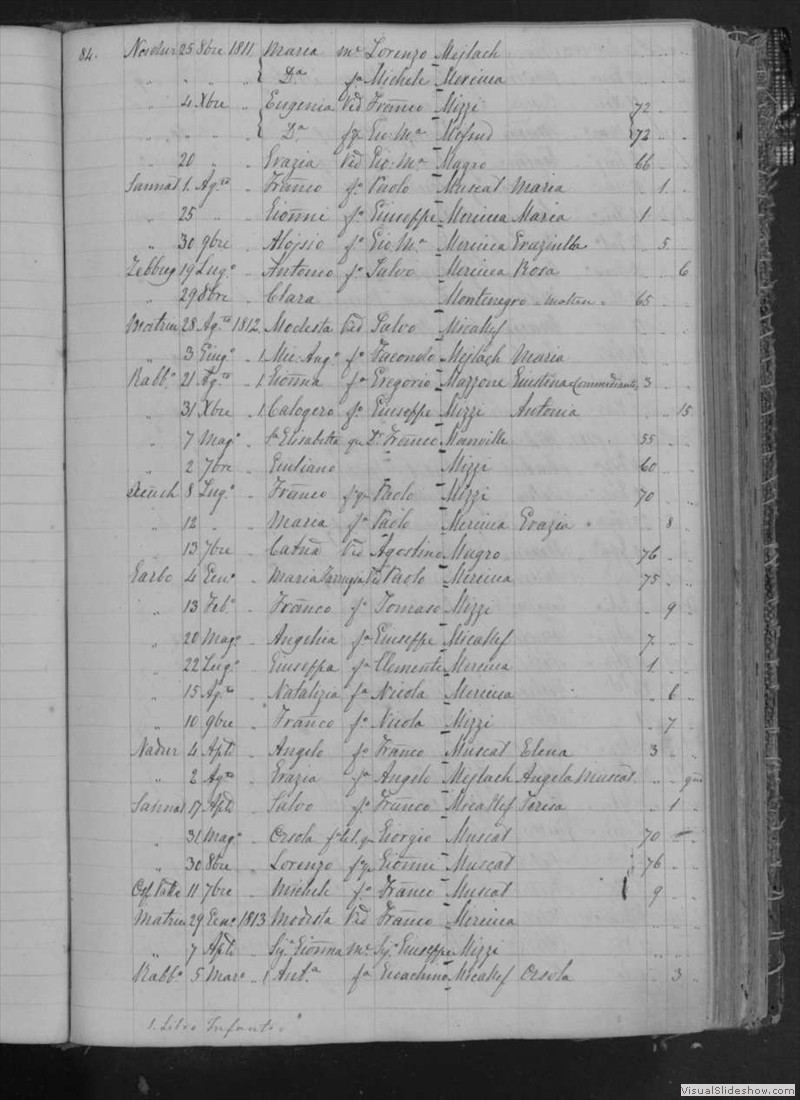 84. Nadur 25 8bre 1811 Maria me Lorenzo Mejlach
" " " " Da fa Michele Mercieca
" 4 Xbre " Eugenia Ved Franco Mizzi 72
" " " " Da fqm Gio. Ma 72
" 20 " " Grazia Ved Gio. Ma Magro 66
Sannat 1. Agto " Franco fo Paolo Muscat Maria 1
" 25 " " Gionni fo Giuseppe Mercieca Maria 1
" 30 9bre " Alojsio fo Gio Ma Mercieca Graziulla 5
Zebbug 19 Lugo " Antonio fo Salvo Mercieca Rosa 6
" 29 8bre " Clara Montenegro 65
28 Agto 1812 Modesta Ved Salvo Micallef
" 3 Giugo " 1 Mic. Ango fo Facondo Mejlach Maria
Rabbo 21 Agto " 1 Gionna fa Gregorio Mazzone 3
" 31 Xbre " 1 Calogero fo Giuseppe Mizzi Antonia 15
" 7 Mago " Elisabetta qm Dr. Franco 55
" 2 7bre " Giuliano Mizzi 60
8 Lugo " Franco fqm Paolo Mizzi 70
" 12 " " Maria fa Paolo Mercieca Grazia 8
" 13 7bre " Catna Ved Agostino Magro 76
Garbo 4 Geno " Maria Farrugia Ved Paolo Mercieca 75
" 13 Febo " Franco fo Tomaso Mizzi 9
" 20 Mago " Angelica fa Giuseppe Micallef 7
" 22 Lugo " Giuseppa fa Clemente Mercieca 1
" 15 Agto " Natalizia fa Nicola Mercieca 6
" 10 9bre " Franco fo Nicola Mizzi 7
Nadur 4 Aple " Angelo fo Franco Muscat Elena 3
" 2 Agto " Grazia fa Angelo Mejlach Angela Muscat
Sannat 17 Aple " Salvo fo Franco Micallef Teresa 1
" 31 Mago " Orsola qm Giorgio Muscat 70
" 30 8bre " Lorenzo fqm Gionni Muscat 76
11 7bre " Michele fo Franco Muscat 9
29 Geno 1813 Modesta Ved Franco Mercieca
" 7 Aple " Sja Gionna me Sjr Giuseppe Mizzi
Rabbo 5 Maro " 1 Anta fa Gioachino Micallef Orsola 3
1. Libro Infanti
VisualSlideshow.com